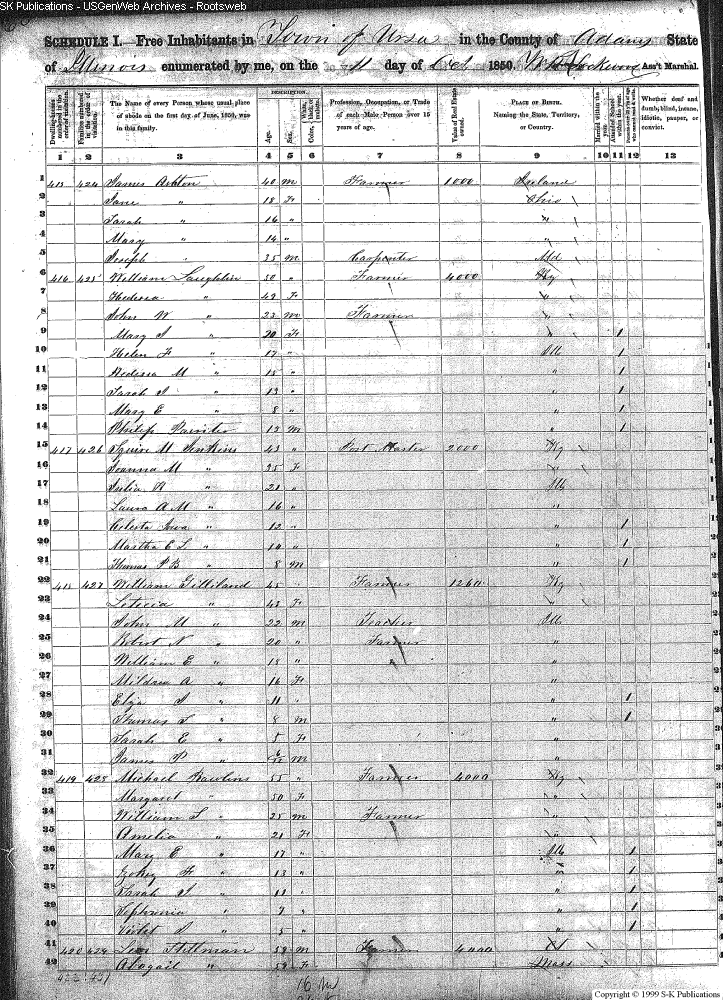 SK Publications - USGenWeb Archives - Rootsweb
SCHEDULE I. Free Inhabitants in Town of Ursa in the County of Adams State
of Illinois enumerated by me, on the 11 day of Oct 1850. Ass't Marshal.
Dwelling-houses numbered in the order of visitation. Families numbered in the order of visitation. The Name of every Person whose usual place of abode on the first day of June, 1850, was in this family. DESCRIPTION. Age. Sex. Color, White, black, or mulatto. Profession, Occupation, or Trade of each Male Person over 15 years of age. Value of Real Estate owned. PLACE OF BIRTH. Naming the State, Territory, or Country. Married within the year. Attended School within the year. Whether deaf and dumb, blind, insane, idiotic, pauper, or convict.
1 2 3 4 5 6 7 8 9 10 11 12 13
1 415 424 James Ashton 40 m Farmer 1000 Ireland
2 Jane " 18 F Ohio
3 Sarah " 16 " "
4 Mary " 14 " "
5 Joseph " 35 m Carpenter Md
6 416 425 William Laughlin 50 " Farmer 4000 Ky
7 " 49 F "
8 John W " 23 m Farmer "
9 Mary " 20 F " 1
10 Helen F " 17 " Ill 1
11 M " 15 " " 1
12 Sarah " 13 " " 1
13 Mary E " 8 " " 1
14 Philip 12 m " 1
15 417 426 Squire M Jenkins 43 " Post Master 2000 Ky
16 Joanna M " 35 F "
17 Julia " 21 " Ill
18 Laura A M " 16 " "
19 Celesta Iowa " 12 " " 1
20 Martha E L " 10 " " 1
21 Thomas P B " 8 m " 1
22 418 427 William Gilliland 45 Farmer 1260 Ky
23 Leticia " 43 F "
24 John M " 22 m Teacher Ill
25 Robert N " 20 " Farmer "
26 William E " 18 " " "
27 Mildred A " 16 F "
28 Eliza " 11 " 1
29 Thomas " 8 m " 1
30 Sarah E " 5 F "
31 James P " m "
32 419 428 Michael Rawlins 55 " Farmer 4000 Ky
33 Margaret " 50 F "
34 William " 25 m Farmer "
35 Amelia " 21 F "
36 Mary E " 17 " Ill 1
37 " 13 " " 1
38 Sarah " 11 " " 1
39 " 7 " " 1
40 Violet " 5 " " 1
41 420 429 Stillman 58 m Farmer 4000
42 Abagail " 59 F Mass
16 m
Copyright © 1999 S-K Publications